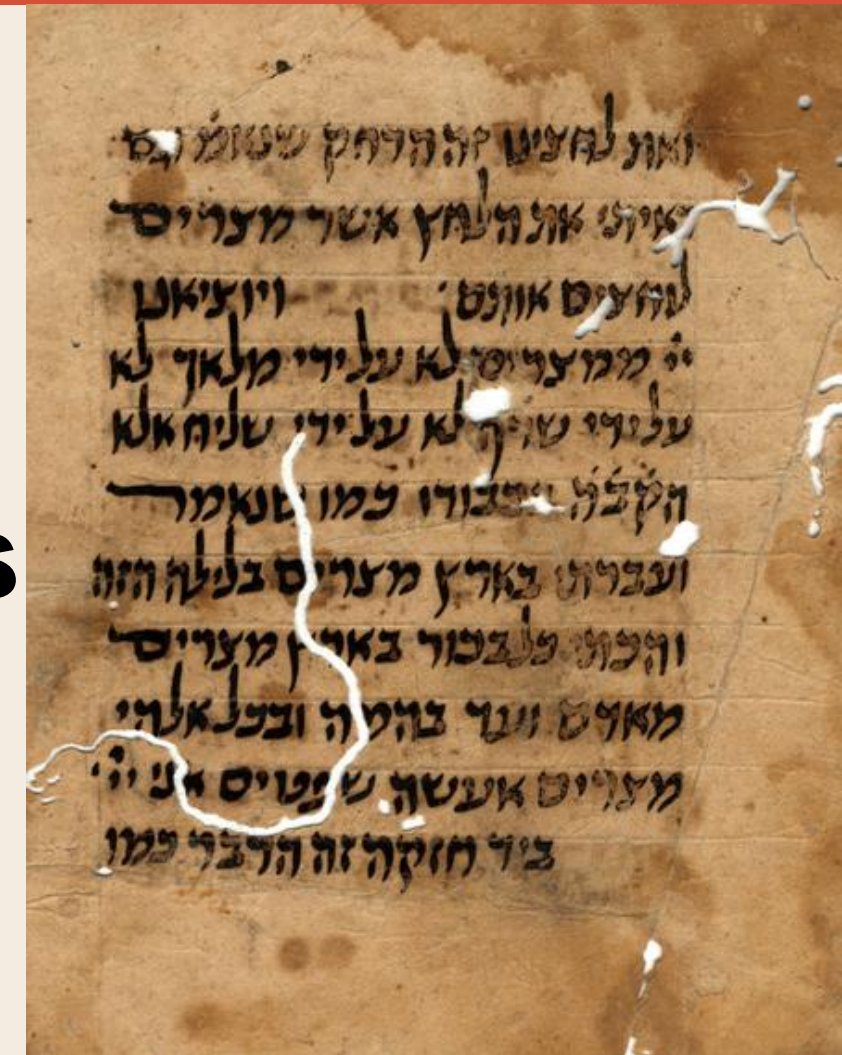 ואת לחצינו זה הדחק שנאמ' וגם
ראיתי את הלחץ אשר מצרים
לחצים אותם: ויוציאנו
ייי ממצרים לא על ידי מלאך לא
על ידי שרף לא על ידי שליח אלא
הק֗ב֗ה֗ בכבודו כמו שנאמר
ועברתי בארץ מצרים בלילה הזה
והכתי כל בכור בארץ מצרים
מאדם ועד בהמה ובכל אלהי
מצרים אעשה שפטים אני ייי
ביד חזקה זה הדבר כמו
s